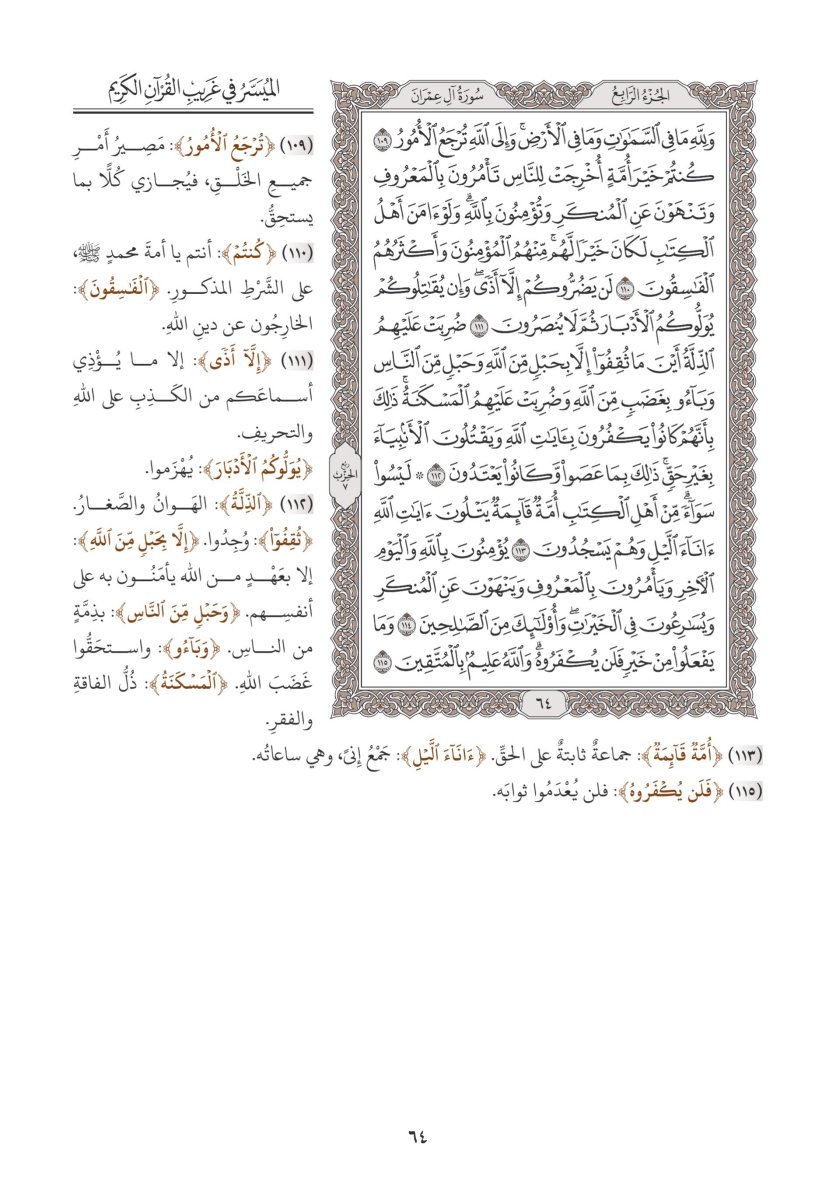 الجُزْءُ الرَّابِعُ
سُورَةُ آلِ عِمْرَانَ
وَلِلَّهِ مَا فِي ٱلسَّمَٰوَٰتِ وَمَا فِي ٱلْأَرْضِۚ وَإِلَى ٱللَّهِ تُرْجَعُ ٱلْأُمُورُ ١٠٩
كُنتُمْ خَيْرَ أُمَّةٍ أُخْرِجَتْ لِلنَّاسِ تَأْمُرُونَ بِٱلْمَعْرُوفِ
وَتَنْهَوْنَ عَنِ ٱلْمُنكَرِ وَتُؤْمِنُونَ بِٱللَّهِۗ وَلَوْ ءَامَنَ أَهْلُ
ٱلْكِتَٰبِ لَكَانَ خَيْرًا لَّهُمۚ مِّنْهُمُ ٱلْمُؤْمِنُونَ وَأَكْثَرُهُمُ
ٱلْفَٰسِقُونَ ١١٠ لَن يَضُرُّوكُمْ إِلَّآ أَذًىۖ وَإِن يُقَٰتِلُوكُمْ
يُوَلُّوكُمُ ٱلْأَدْبَارَ ثُمَّ لَا يُنصَرُونَ ١١١ ضُرِبَتْ عَلَيْهِمُ
ٱلذِّلَّةُ أَيْنَ مَا ثُقِفُوٓا۟ إِلَّا بِحَبْلٍ مِّنَ ٱللَّهِ وَحَبْلٍ مِّنَ ٱلنَّاسِ
وَبَآءُو بِغَضَبٍ مِّنَ ٱللَّهِ وَضُرِبَتْ عَلَيْهِمُ ٱلْمَسْكَنَةُۚ ذَٰلِكَ
بِأَنَّهُمْ كَانُوا۟ يَكْفُرُونَ بِـَٔايَٰتِ ٱللَّهِ وَيَقْتُلُونَ ٱلْأَنۢبِيَآءَ
بِغَيْرِ حَقٍّۚ ذَٰلِكَ بِمَا عَصَوا۟ وَّكَانُوا۟ يَعْتَدُونَ ١١٢ ۞ لَيْسُوا۟
سَوَآءًۗ مِّنْ أَهْلِ ٱلْكِتَٰبِ أُمَّةٌ قَآئِمَةٌ يَتْلُونَ ءَايَٰتِ ٱللَّهِ
ءَانَآءَ ٱلَّيْلِ وَهُمْ يَسْجُدُونَ ١١٣ يُؤْمِنُونَ بِٱللَّهِ وَٱلْيَوْمِ
ٱلْءَاخِرِ وَيَأْمُرُونَ بِٱلْمَعْرُوفِ وَيَنْهَوْنَ عَنِ ٱلْمُنكَرِ
وَيُسَٰرِعُونَ فِي ٱلْخَيْرَٰتِۖ وَأُو۟لَٰٓئِكَ مِنَ ٱلصَّٰلِحِينَ ١١٤ وَمَا
يَفْعَلُوا۟ مِنْ خَيْرٍ فَلَن يُكْفَرُوهُۗ وَٱللَّهُ عَلِيمٌۢ بِٱلْمُتَّقِينَ ١١٥
٦٤
رُبْعُ
الحِزْبِ
٧
المُيَسَّرُ في غَرِيبِ القُرْآنِ الكَرِيم
(١٠٩) ﴿تُرْجَعُ ٱلْأُمُورُ﴾: مَصِيرُ أَمْرِ
جميعِ الخَلْقِ، فيُجازي كُلًّا بما
يستحِقُّ.
(١١٠) ﴿كُنتُمْ﴾: أنتم يا أمةَ محمدٍ ﷺ،
على الشَّرْطِ المذكورِ. ﴿ٱلْفَٰسِقُونَ﴾:
الخارِجُون عن دينِ اللهِ.
(١١١) ﴿إِلَّآ أَذًى﴾: إلا ما يُؤْذِي
أسماعَكم من الكَذِبِ على اللهِ
والتحريفِ.
﴿يُوَلُّوكُمُ ٱلْأَدْبَارَ﴾: يُهْزَموا.
(١١٢) ﴿ٱلذِّلَّةُ﴾: الهَوانُ والصَّغارُ.
﴿ثُقِفُوٓا۟﴾: وُجِدُوا. ﴿إِلَّا بِحَبْلٍ مِّنَ ٱللَّهِ﴾:
إلا بعَهْدٍ من الله يأمَنُون به على
أنفسِهم. ﴿وَحَبْلٍ مِّنَ ٱلنَّاسِ﴾: بذِمَّةٍ
من الناسِ. ﴿وَبَآءُو﴾: واستحَقُّوا
غَضَبَ اللهِ. ﴿ٱلْمَسْكَنَةُ﴾: ذُلُّ الفاقةِ
والفقرِ.
(١١٣) ﴿أُمَّةٌ قَآئِمَةٌ﴾: جماعةٌ ثابتةٌ على الحقِّ. ﴿ءَانَآءَ ٱلَّيْلِ﴾: جَمْعُ إِنًى، وهي ساعاتُه.
(١١٥) ﴿فَلَن يُكْفَرُوهُ﴾: فلن يُعْدَمُوا ثوابَه.
٦٤